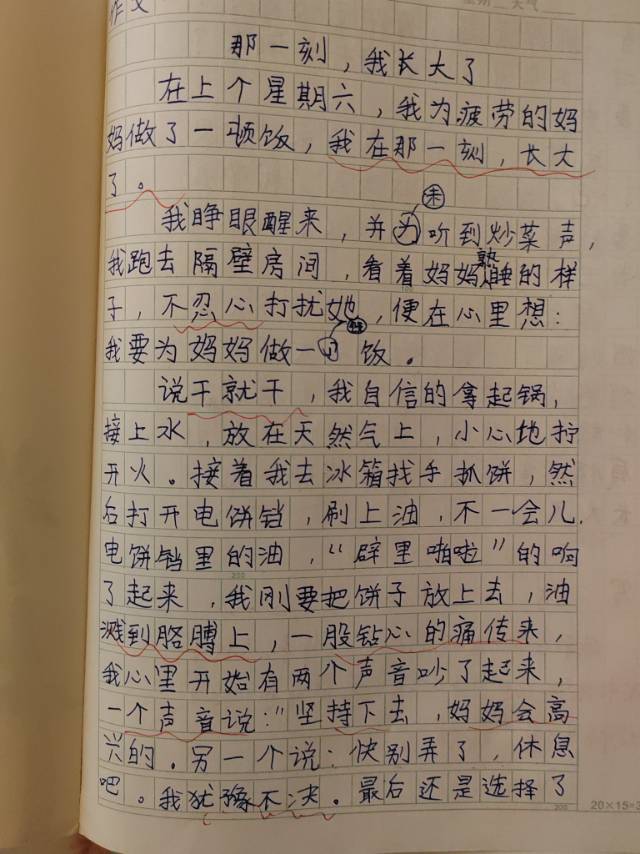 作文
那一刻，我长大了
在上个星期六，我为疲劳的妈
妈做了一顿饭，我在那一刻，长大
了。
未
我睁眼醒来，并听到炒菜声，
熟
我跑去隔壁房间，看着妈妈睡的样
子，不忍心打扰她，便在心里想：
我要为妈妈做一饭。
说干就干，我自信的拿起锅，
接上水，放在天然气上，小心地拧
开火。接着我去冰箱找手抓饼，然
后打开电饼铛，刷上油，不一会儿．
电饼铛里的油，“辟里啪啦”的响
了起来，我刚要把饼子放上去，油
溅到胳膊上，一股钻心的痛传来，
我心里开始有两个声音吵了起来，
一个声音说：“坚持下去，妈妈会高
兴的．另一个说：快别弄了，休息
吧。我犹豫不决。最后还是选择了
20×15=3